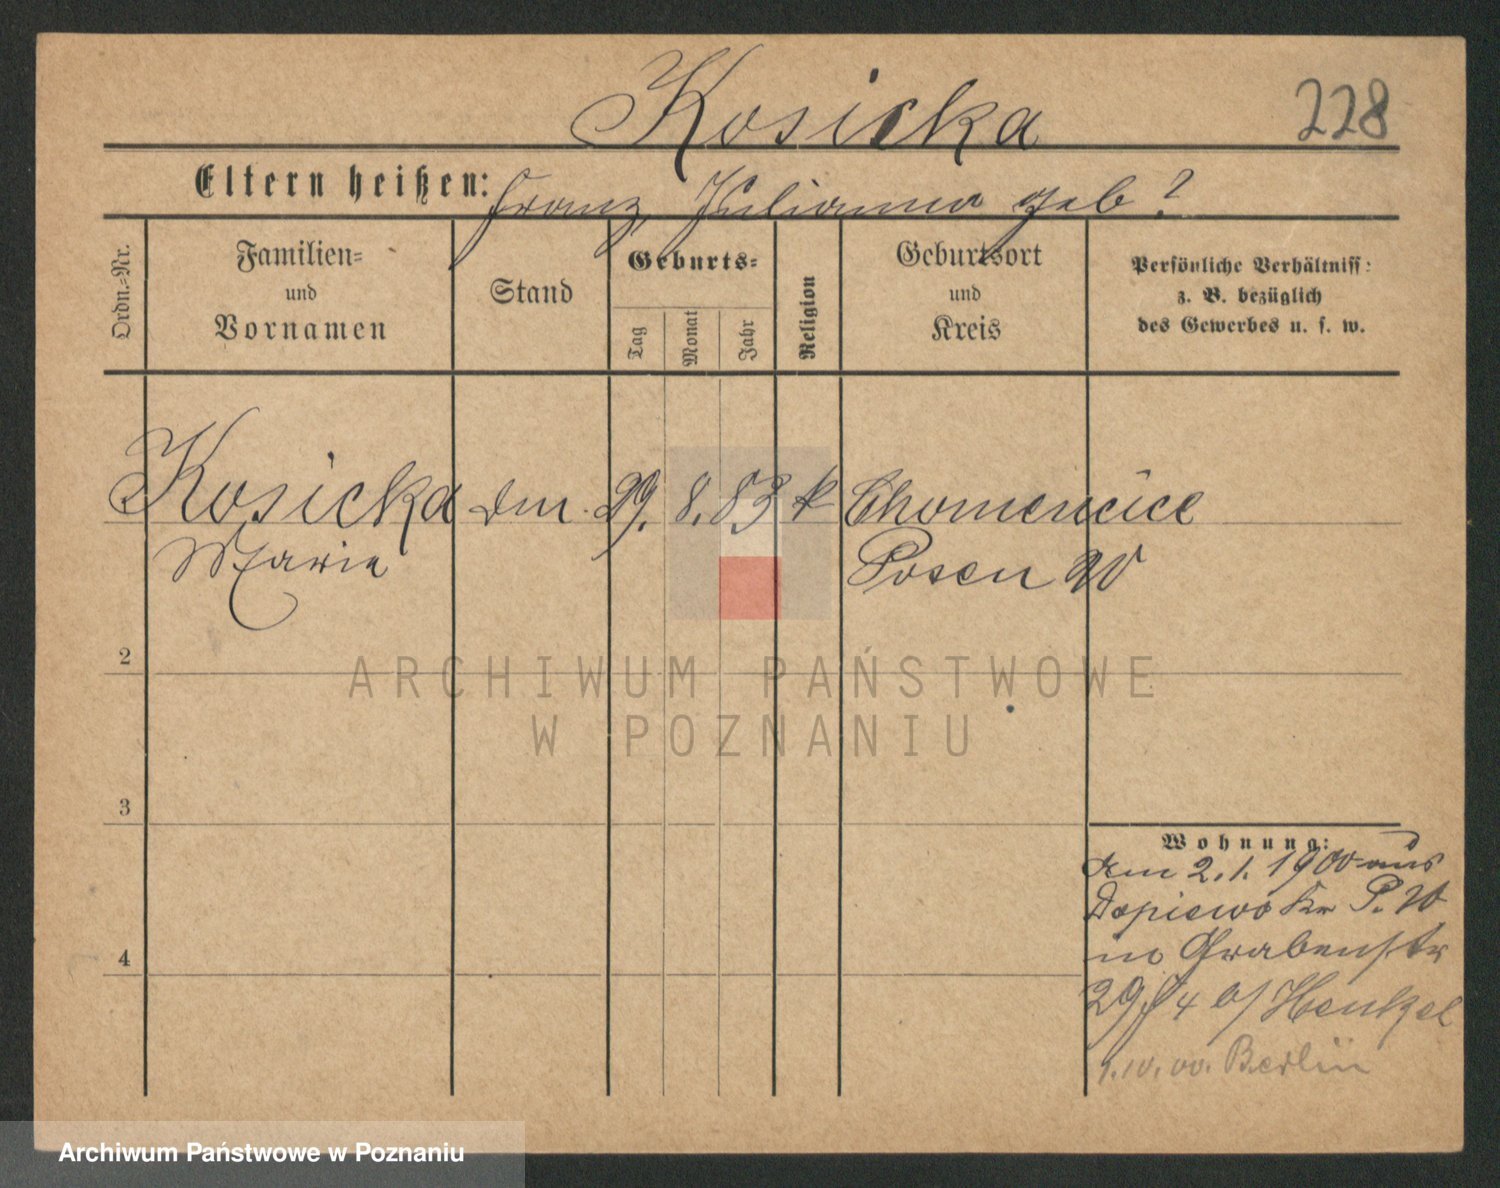 Kosicka
228
Eltern heißen: Franz, Julianna geb?
Ordn.-Nr.
Familien-
und
Vornamen
Stand
Geburts-
Tag
Monat
Jahr
Religion
Geburtsort
und
Kreis
Persönliche Verhältniss:
z. B. bezüglich
des Gewerbes u. s. w.
Kosicka 29. 8. 83 k Chomencice
Marie Posen W
2
ARCHIWUM PAŃSTWOWE
W POZNANIU
3
Wohnung:
Am 2.1.1900 aus
Dopiewo Kr P. W
in Grabenstr
29 4 b/ Henkel
Berlin
4
Archiwum Państwowe w Poznaniu